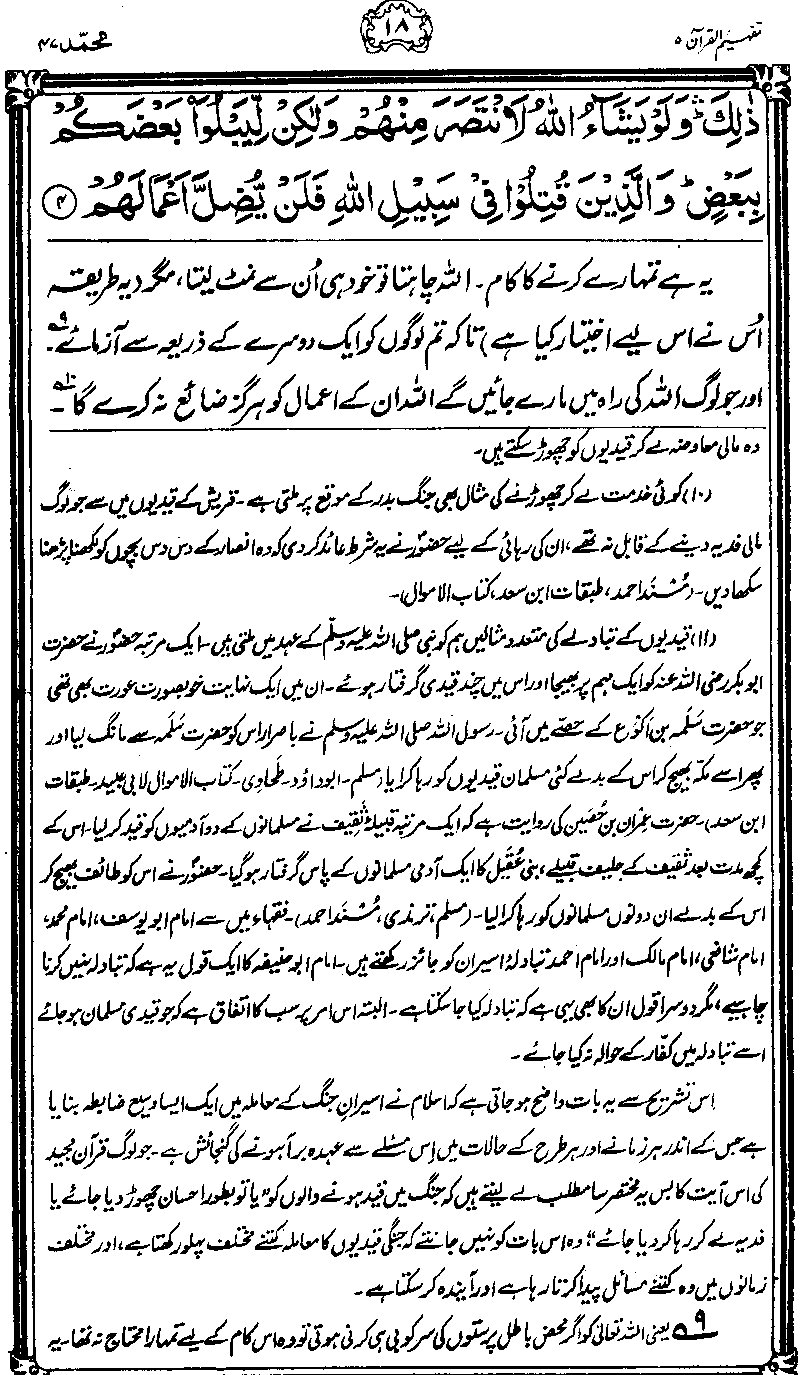 تفہیم القرآن ۵
۱۸
محمّد ۴۷
ذٰلِكَ ۛؕ وَلَوْ يَشَآءُ اللّٰهُ لَانْتَصَرَ مِنْهُمْ وَلٰكِنْ لِّيَبْلُوَا۟ بَعْضَكُمْ
بِبَعْضٍ ؕ وَالَّذِيْنَ قُتِلُوْا فِيْ سَبِيْلِ اللّٰهِ فَلَنْ يُّضِلَّ اَعْمَالَهُمْ ۴
یہ ہے تمہارے کرنے کا کام۔ اللہ چاہتا تو خود ہی اُن سے نمٹ لیتا، مگر (یہ طریقہ
اُس نے اس لیے اختیار کیا ہے) تاکہ تم لوگوں کو ایک دوسرے کے ذریعہ سے آزمائے۔ ۹
اور جو لوگ اللہ کی راہ میں مارے جائیں گے اللہ ان کے اعمال کو ہرگز ضائع نہ کرے گا۔ ۱۰
وہ مالی معاوضہ لے کر قیدیوں کو چھوڑ سکتے ہیں۔
(۱۰) کوئی خدمت لے کر چھوڑنے کی مثال بھی جنگ بدر کے موقع پر ملتی ہے۔ قریش کے قیدیوں میں سے جو لوگ
مالی فدیہ دینے کے قابل نہ تھے، ان کی رہائی کے لیے حضورؐ نے یہ شرط عائد کر دی کہ وہ انصار کے دس دس بچوں کو لکھنا پڑھنا
سکھا دیں۔ (مُسند احمد، طبقات ابن سعد، کتاب الاموال)۔
(۱۱) قیدیوں کے تبادلے کی متعدد مثالیں ہم کو نبی صلی اللہ علیہ وسلّم کے عہد میں ملتی ہیں۔ ایک مرتبہ حضورؐ نے حضرت
ابوبکر رضی اللہ عنہ کو ایک مہم پر بھیجا اور اس میں چند قیدی گرفتار ہوئے۔ ان میں ایک نہایت خوبصورت عورت بھی تھی
جو حضرت سَلَمہ بن اَکْوَع کے حصّے میں آئی۔ رسول اللہ صلی اللہ علیہ وسلم نے باصرار اس کو حضرت سَلَمہ سے مانگ لیا اور
پھر اسے مکّہ بھیج کر اس کے بدلے کئی مسلمان قیدیوں کو رہا کرایا (مسلم۔ ابوداؤد۔ طحاوی۔ کتاب الاموال لابی عبید۔ طبقات
ابن سعد)۔ حضرت عمران بن حُصَین کی روایت ہے کہ ایک مرتبہ قبیلۂ ثقیف نے مسلمانوں کے دو آدمیوں کو قید کر لیا۔ اس کے
کچھ مدت بعد ثقیف کے حلیف قبیلے، بنی عُقَیل کا ایک آدمی مسلمانوں کے پاس گرفتار ہو گیا۔ حضورؐ نے اس کو طائف بھیج کر
اس کے بدلے ان دونوں مسلمانوں کو رہا کرا لیا۔ (مسلم، ترمذی، مُسند احمد)۔ فقہاء میں سے امام ابو یوسف، امام محمد،
امام شافعی، امام مالک اور امام احمد تبادلۂ اسیران کو جائز رکھتے ہیں۔ امام ابو حنیفہ کا ایک قول یہ ہے کہ تبادلہ نہیں کرنا
چاہیے، مگر دوسرا قول ان کا بھی یہی ہے کہ تبادلہ کیا جا سکتا ہے۔ البتہ اس امر پر سب کا اتفاق ہے کہ جو قیدی مسلمان ہو جائے
اسے تبادلہ میں کفّار کے حوالہ نہ کیا جائے۔
اس تشریح سے یہ بات واضح ہو جاتی ہے کہ اسلام نے اسیرانِ جنگ کے معاملہ میں ایک ایسا وسیع ضابطہ بنایا
ہے جس کے اندر ہر زمانے اور ہر طرح کے حالات میں اِس مسئلے سے عہدہ برآ ہونے کی گنجائش ہے۔ جو لوگ قرآن مجید
کی اس آیت کا بس یہ مختصر سا مطلب لے لیتے ہیں کہ جنگ میں قید ہونے والوں کو "یا تو بطور احسان چھوڑ دیا جائے یا
فدیہ لے کر رہا کر دیا جائے" وہ اس بات کو نہیں جانتے کہ جنگی قیدیوں کا معاملہ کتنے مختلف پہلو رکھتا ہے، اور مختلف
زمانوں میں وہ کتنے مسائل پیدا کرتا رہا ہے اور آیندہ کر سکتا ہے۔
۹ یعنی اللہ تعالیٰ کو اگر محض باطل پرستوں کی سرکوبی ہی کرنی ہوتی تو وہ اس کام کے لیے تمہارا محتاج نہ تھا۔ یہ